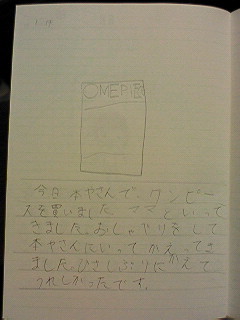 OMEPIE
今日本やさんで、ワンピー
スを買いました ママといって
きました。おしゃべりをして
本やさんにいってかえってき
ました。ひさしぶりにかえて
うれしかったです。